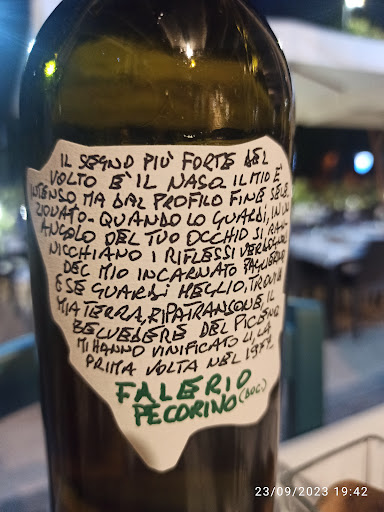 IL SEGNO PIÙ FORTE DEL
VOLTO E' IL NASO. IL MIO E'
INTENSO, MA DAL PROFILO FINE SELE-
ZIONATO - QUANDO LO GUARDI, IN UN
ANGOLO DEL TUO OCCHIO SI RAN-
NICCHIANO I RIFLESSI VERDOGNOLI
DEL MIO INCARNATO PAGLIERINO
E SE GUARDI MEGLIO, TROVI LA
MIA TERRA, RIPATRANSONE, IL
BELVEDERE DEL PICENO
MI HANNO VINIFICATO LI, LA
PRIMA VOLTA NEL
FALERIO
PECORINO (DOC)
23/09/2023 19:42